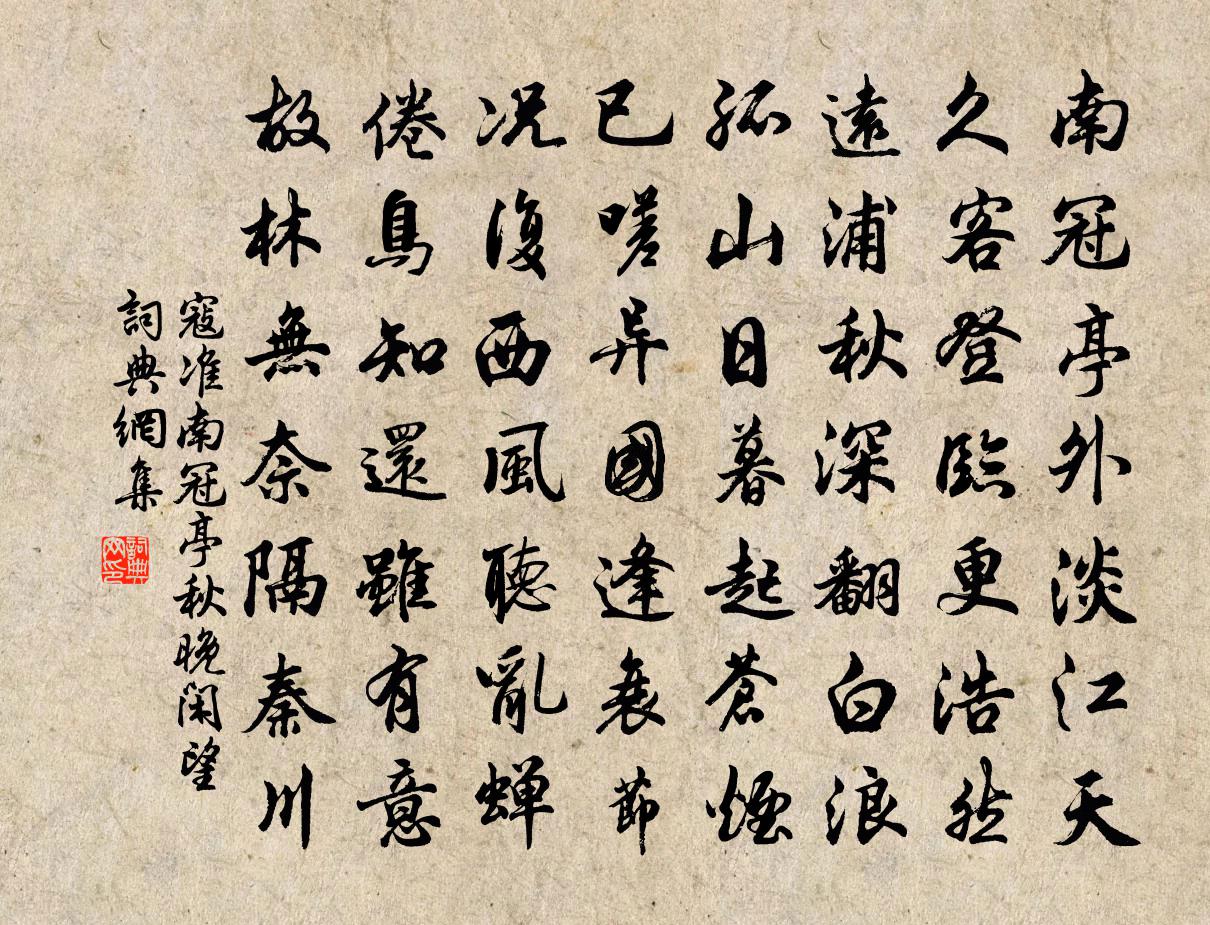 南冠亭外淡江天
久客登臨更浩然
遠浦秋深翻白浪
孤山日暮起蒼煙
已嗟异國逢衰節
况復西風聽亂蟬
倦鳥知還雖有意
故林無奈隔秦川
寇准南冠亭秋晚閑望
詞典網集
詞典网印